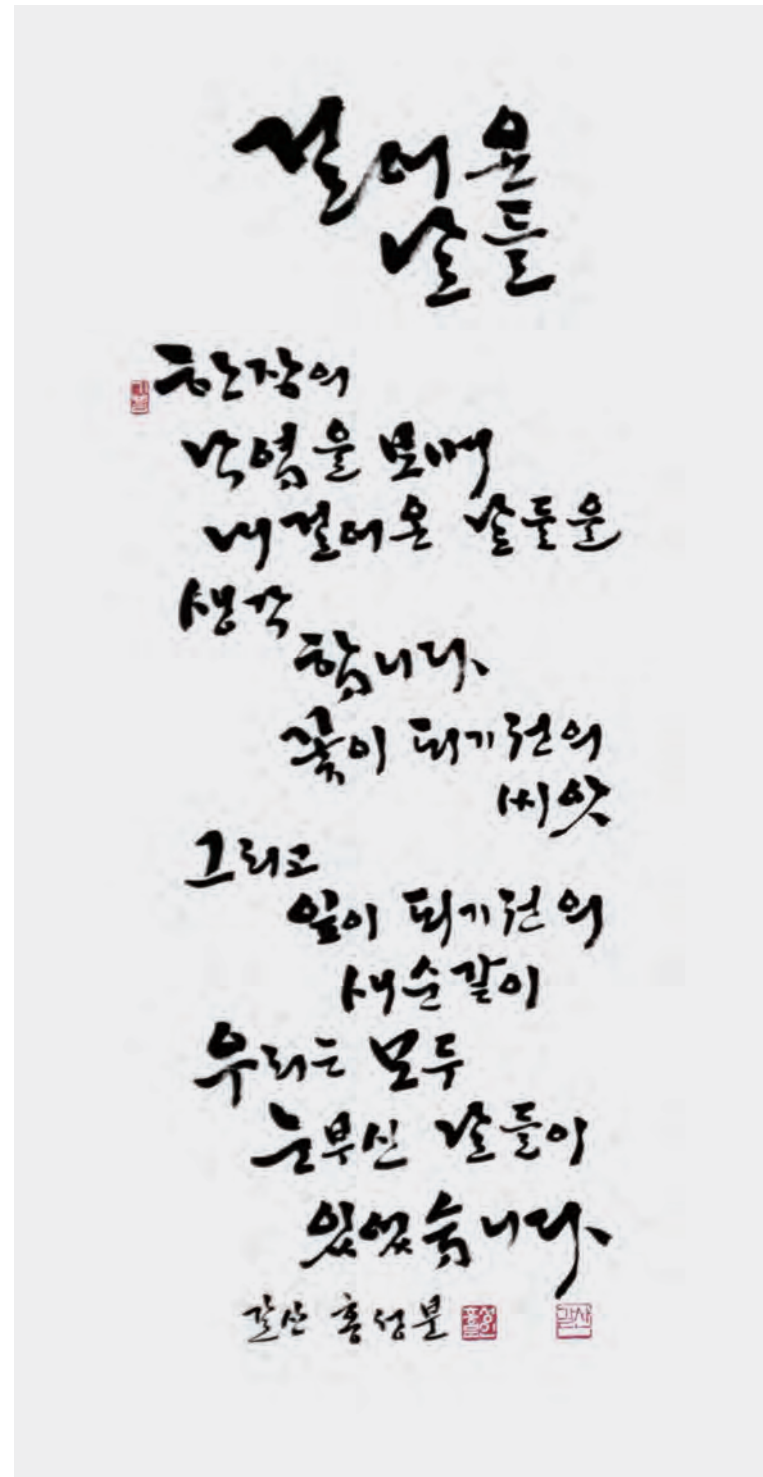 걸어온
날들
한장의
낙엽을 보며
내 걸어온 날들을
생각
합니다.
꽃이 피기전의
씨앗
그리고
잎이 피기전의
새순같이
우리는 모두
눈부신 날들이
있었습니다.
갈산 홍성분
갈산